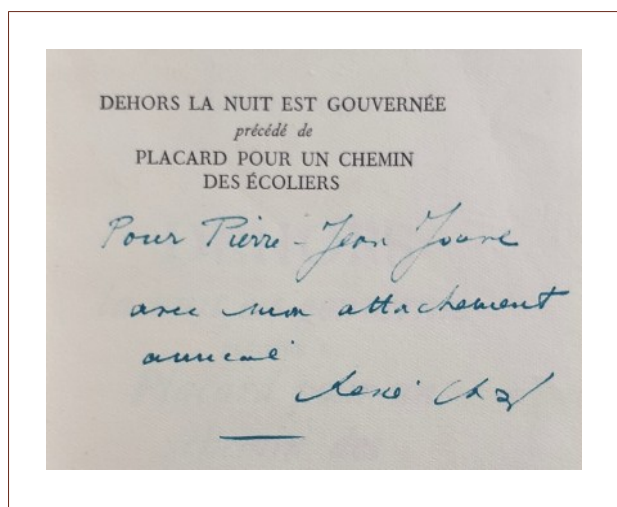 DEHORS LA NUIT EST GOUVERNÉE
précédé de
PLACARD POUR UN CHEMIN
DES ÉCOLIERS
Pour Pierre-Jean Jouve
avec mon attachement
René Char